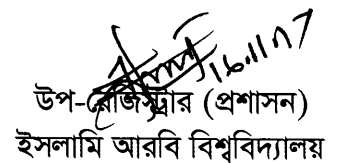 16.11.17
উপ-রেজিস্ট্রার (প্রশাসন)
ইসলামি আরবি বিশ্ববিদ্যালয়